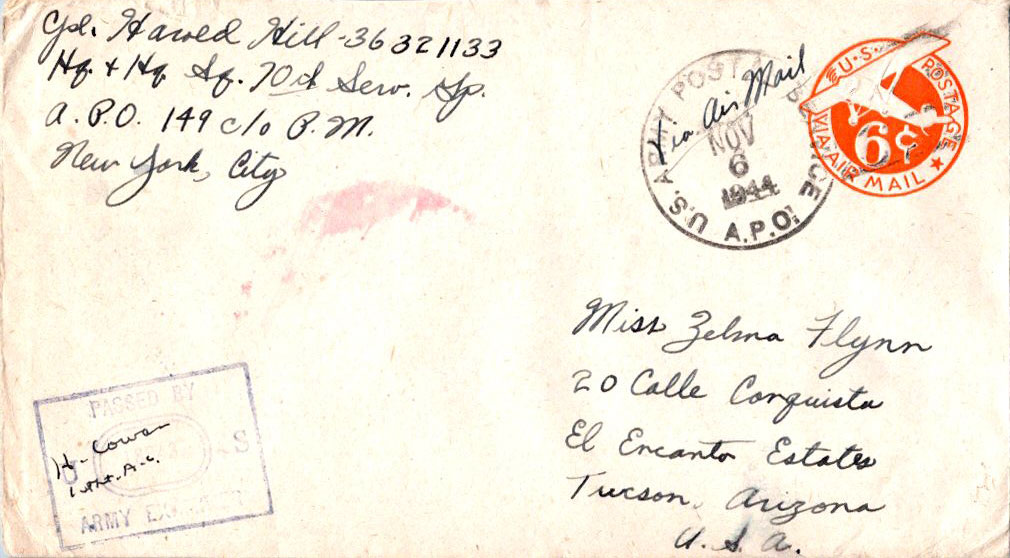 Cpl. Harold Hill - 36321133
Hq. + Hq. Sq. 70th Serv. Gp.
A.P.O. 149 c/o P.M.
New York, City
Via Air Mail
U.S. ARMY POSTAL
A.P.O.
NOV
6
1944
U.S. POSTAGE
6¢
VIA AIR MAIL
Miss Zelma Flynn
20 Calle Conquista
El Encanto Estates
Tucson, Arizona
U.S.A.
PASSED BY
H. Cowan
S
ARMY